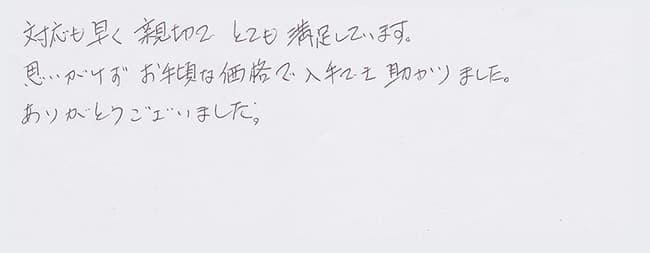 対応も早く親切でとても満足しています。
思いがけずお手頃な価格で入手でき助かりました。
ありがとうございました。